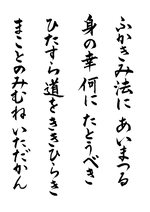 ふかきみ法に あいまつる
身の幸 何に たとうべき
ひたすら道を ききひらき
まことのみむね いただかん